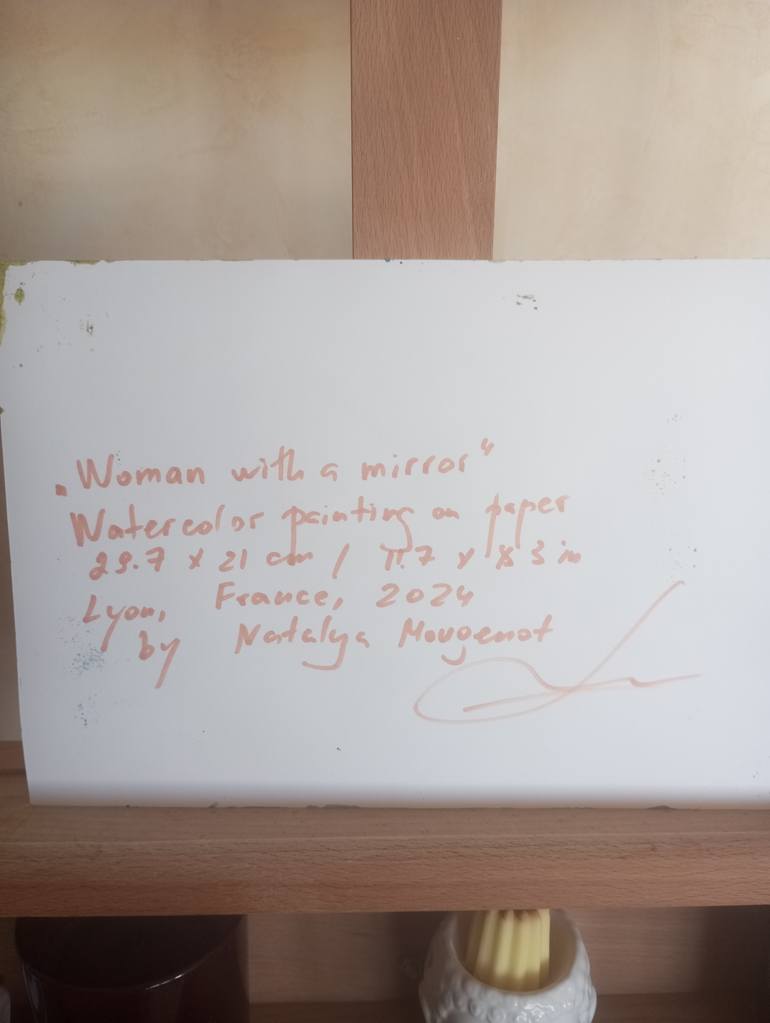 „Woman with a mirror“
Watercolor painting on paper
29.7 x 21 cm / 11.7 x 8.3 in
Lyon, France, 2024
by Natalya Mougenot